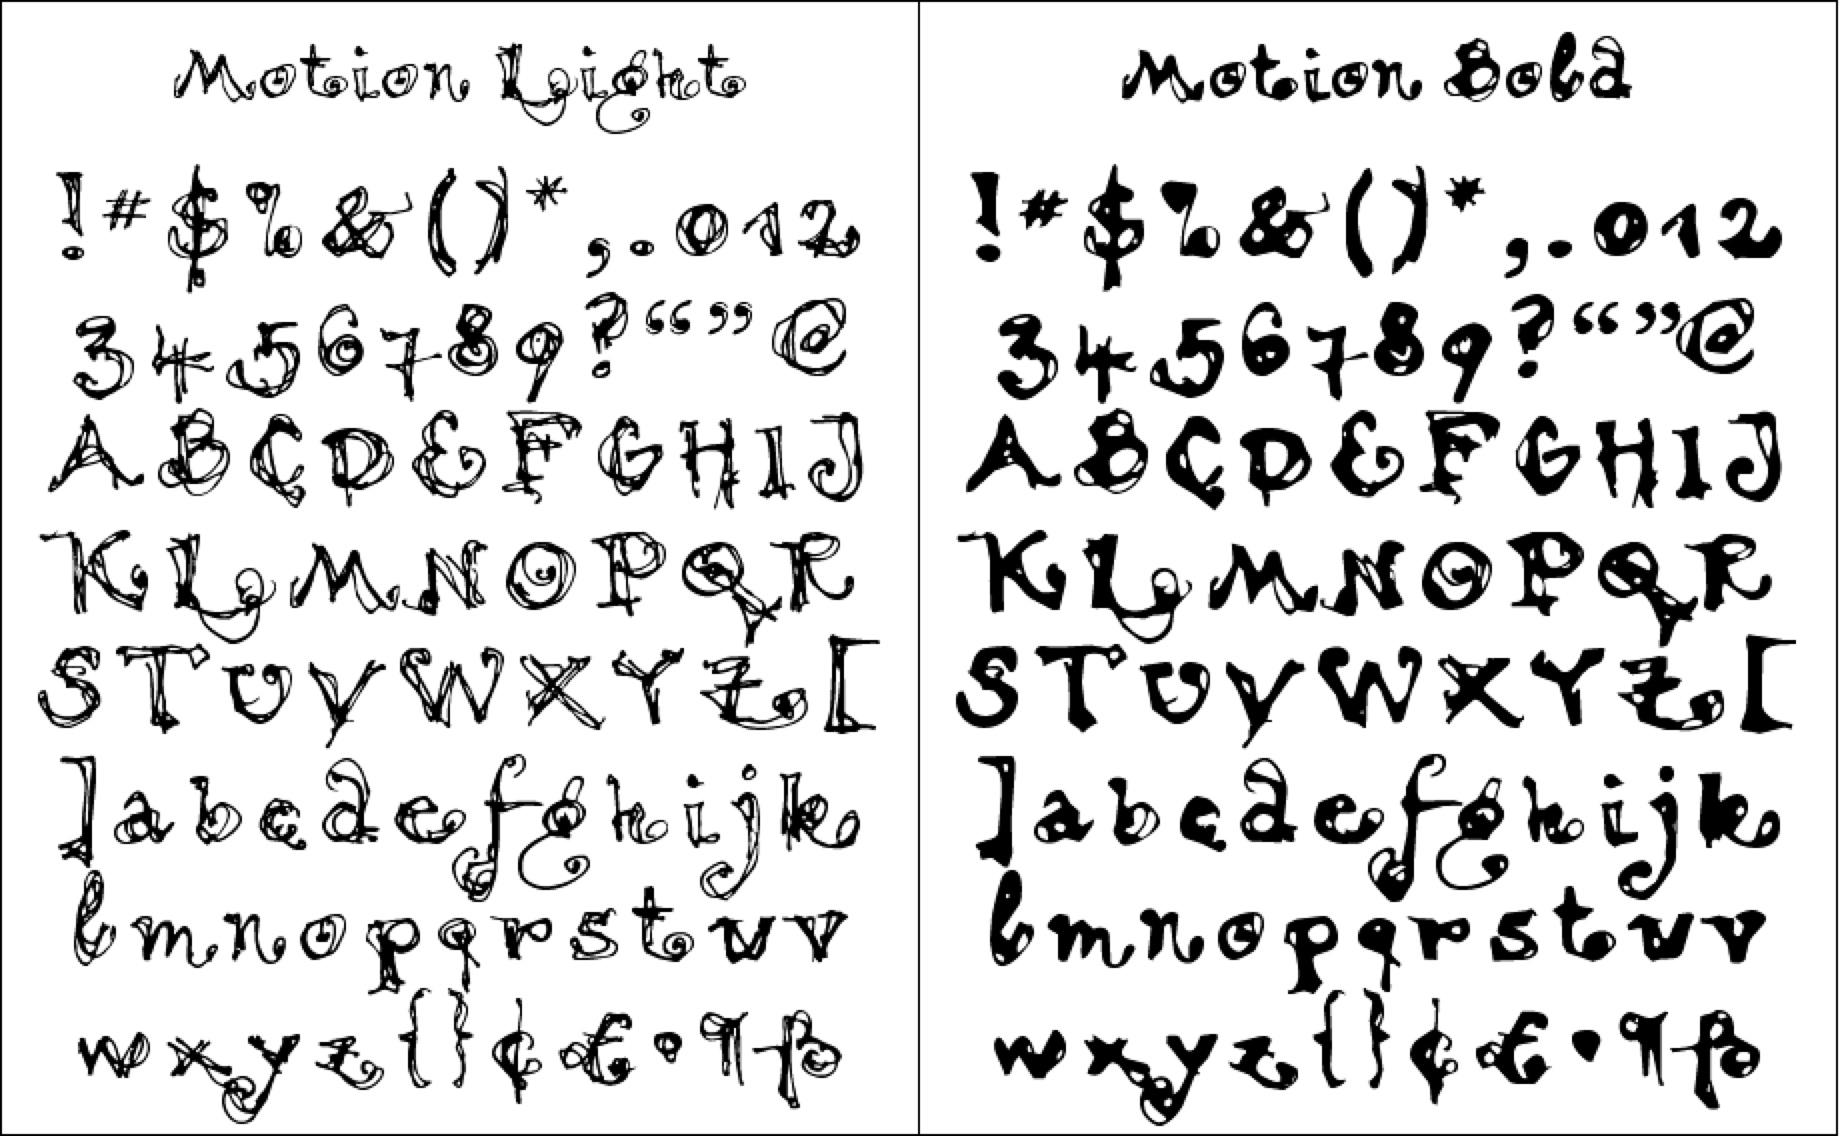 Motion Light
! # $ % & ( ) * , . 0 1 2
3 4 5 6 7 8 9 ? “ ” @
A B C D E F G H I J
K L M N O P Q R
S T U V W X Y Z [
] a b c d e f g h i j k
l m n o p q r s t u v
w x y z { } ¢ £ • ¶ ß
Motion Bold
! # $ % & ( ) * , . 0 1 2
3 4 5 6 7 8 9 ? “ ” @
A B C D E F G H I J
K L M N O P Q R
S T U V W X Y Z [
] a b c d e f g h i j k
l m n o p q r s t u v
w x y z { } ¢ £ • ¶ ß